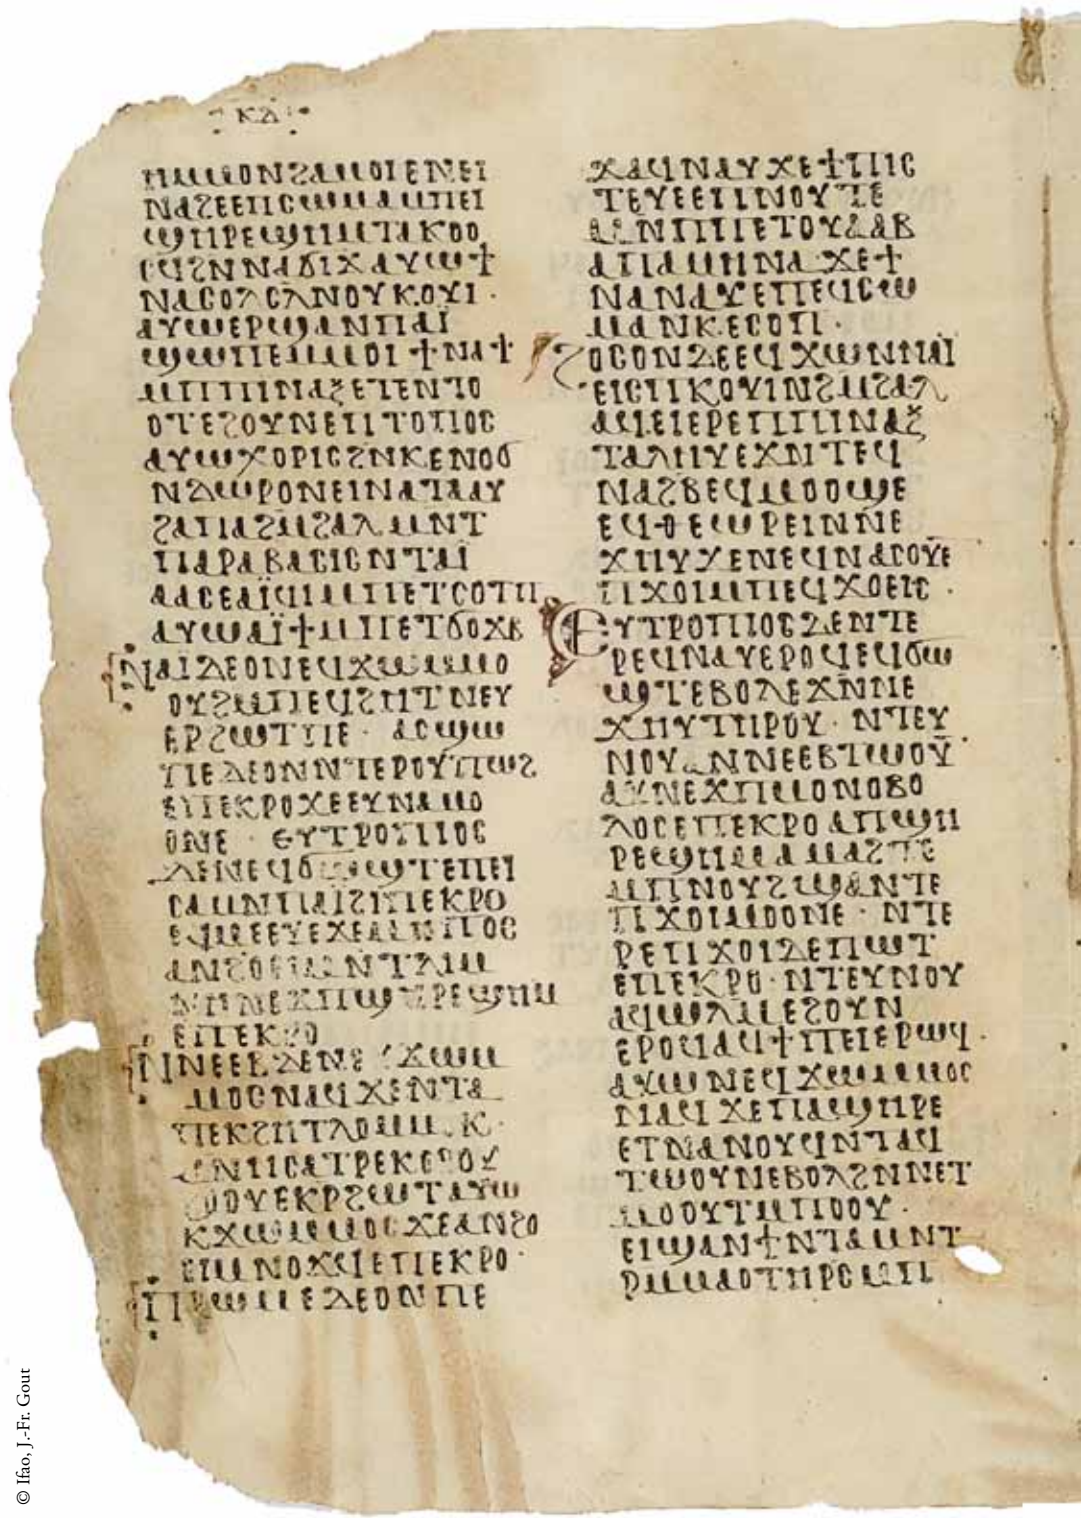 ⲕⲇ
ⲙⲙⲟⲛϩⲁⲙⲟⲓⲉⲛⲉⲓ
ⲛⲁϩⲉⲉⲡⲥⲱⲙⲁⲙⲡⲉⲓ
ϣⲏⲣⲉϣⲏⲙⲧⲁⲕⲟⲟ
ⲥϥϩⲛⲛⲁϭⲓϫⲁⲩⲱϯ
ⲛⲁⲥⲟⲗⲥⲗⲛⲟⲩⲕⲟⲩⲓ·
ⲁⲩⲱⲉⲣϣⲁⲛⲡⲁⲓ
ϣⲱⲡⲉⲙⲙⲟⲓϯⲛⲁϯ
ⲙⲡⲡⲓⲛⲁⲝⲉⲧⲉⲛⲧⲟ
ⲟⲧⲉϩⲟⲩⲛⲉⲡⲧⲟⲡⲟⲥ
ⲁⲩⲱⲭⲟⲣⲓⲥϩⲛⲕⲉⲛⲟϭ
ⲛⲇⲱⲣⲟⲛⲉⲓⲛⲁⲧⲁⲁⲩ
ϩⲁⲡⲁϩⲙϩⲁⲗⲙⲛⲧ
ⲡⲁⲣⲁⲃⲁⲥⲓⲥⲛⲧⲁⲓ
ⲁⲁⲥⲉⲁⲓϥⲓⲙⲡⲉⲧⲥⲟⲧⲡ
ⲁⲩⲱⲁⲓϯⲙⲡⲉⲧϭⲟϫⲃ
ⲛⲁⲓⲇⲉⲟⲛⲉϥϫⲱⲙⲙⲟ
ⲟⲩϩⲙⲡⲉϥϩⲏⲧⲛⲉⲩ
ⲉⲣϩⲱⲧⲡⲉ· ⲁⲥϣⲱ
ⲡⲉⲇⲉⲟⲛⲛⲧⲉⲣⲟⲩⲡⲱϩ
ⲉⲡⲉⲕⲣⲟϫⲉⲉⲩⲛⲁⲙⲟ
ⲟⲛⲉ· ⲉⲩⲧⲣⲟⲡⲓⲟⲥ
ⲇⲉⲛⲉϥϭⲱϣⲧⲉⲡⲉⲓ
ⲥⲁⲙⲛⲡⲁⲓϩⲙⲡⲉⲕⲣⲟ
ⲉϥⲙⲉⲉⲩⲉϫⲉⲁⲙⲏⲡⲟⲥ
ⲙⲛⲛⲉϫⲡⲱϣⲏⲣⲉϣⲏⲙ
ⲉⲡⲉⲕⲣⲟ
ⲙⲟⲥⲛⲁϥϫⲉⲛⲧⲁ
ⲙⲛⲛⲥⲁⲧⲣⲉⲕⲥⲟⲟⲩ
ϩⲟⲟⲩⲉⲕⲣϩⲱⲧⲁⲩⲱ
ⲕϫⲱⲙⲙⲟⲥϫⲉⲁⲛϩⲟ
ⲉⲓⲙⲛⲟϫϥⲉⲡⲉⲕⲣⲟ·
ⲡⲣⲱⲙⲉⲇⲉⲟⲛⲡⲉ
ϫⲁϥⲛⲁⲩϫⲉϯⲡⲓⲥ
ⲧⲉⲩⲉⲉⲡⲛⲟⲩⲧⲉ
ⲙⲛⲡⲡⲉⲧⲟⲩⲁⲁⲃ
ⲁⲡⲁⲙⲏⲛⲁ·ϫⲉϯ
ⲛⲁⲛⲁⲩⲉⲡⲉϥⲥⲱ
ⲙⲁⲛⲕⲉⲥⲟⲡ·
ϩⲟⲥⲟⲛⲇⲉⲉϥϫⲱⲛⲛⲁⲓ
ⲉⲓⲥⲡⲕⲟⲩⲓⲛϩⲙϩⲁⲗ
ⲁϥⲉⲓⲉⲣⲉⲡⲡⲓⲛⲁⲝ
ⲧⲁⲗⲏⲩⲉϫⲛⲧⲉϥ
ⲛⲁϩⲃⲉϥⲙⲟⲟϣⲉ
ⲉϥⲑⲉⲱⲣⲉⲓⲛⲛⲉ
ϫⲏⲩϫⲉⲛⲉϥⲛⲁⲥⲟⲩⲉ
ⲡϫⲟⲓⲙⲡⲉϥϫⲟⲉⲓⲥ·
ⲉⲩⲧⲣⲟⲡⲓⲟⲥⲇⲉⲛⲧⲉ
ⲣⲉϥⲛⲁⲩⲉⲣⲟϥⲉϥϭⲱ
ϣⲧⲉⲃⲟⲗⲉϫⲛⲛⲉ
ϫⲏⲩⲧⲏⲣⲟⲩ· ⲛⲧⲉⲩ
ⲛⲟⲩⲁⲛⲛⲉⲉⲃⲧⲱⲟⲩ
ⲁⲩⲛⲉϫⲡⲙⲟⲛⲟⲃⲟ
ⲗⲟⲥⲉⲡⲉⲕⲣⲟⲁⲡϣⲏ
ⲣⲉϣⲏⲙⲁⲙⲁϩⲧⲉ
ⲙⲡⲛⲟⲩϩϣⲁⲛⲧⲉ
ⲡϫⲟⲓⲙⲟⲟⲛⲉ· ⲛⲧⲉ
ⲣⲉⲡϫⲟⲓⲇⲉⲡⲱⲧ
ⲉⲡⲉⲕⲣⲟ·ⲛⲧⲉⲩⲛⲟⲩ
ⲁϥⲱⲗⲙⲉϩⲟⲩⲛ
ⲉⲣⲟϥⲁϥϯⲡⲉⲓⲉⲣⲱϥ·
ⲁⲩⲱⲛⲉϥϫⲱⲙⲙⲟⲥ
ⲛⲁϥϫⲉⲡⲁϣⲏⲣⲉ
ⲉⲧⲛⲁⲛⲟⲩϥⲛⲧⲁϥ
ⲧⲱⲟⲩⲛⲉⲃⲟⲗϩⲛⲛⲉⲧ
ⲙⲟⲟⲩⲧⲙⲡⲟⲟⲩ·
ⲉⲓϣⲁⲛϯⲛⲧⲁⲙⲛⲧ
ⲣⲙⲙⲁⲟⲧⲏⲣⲥⲙⲡ
© Ifao, J.-Fr. Gout